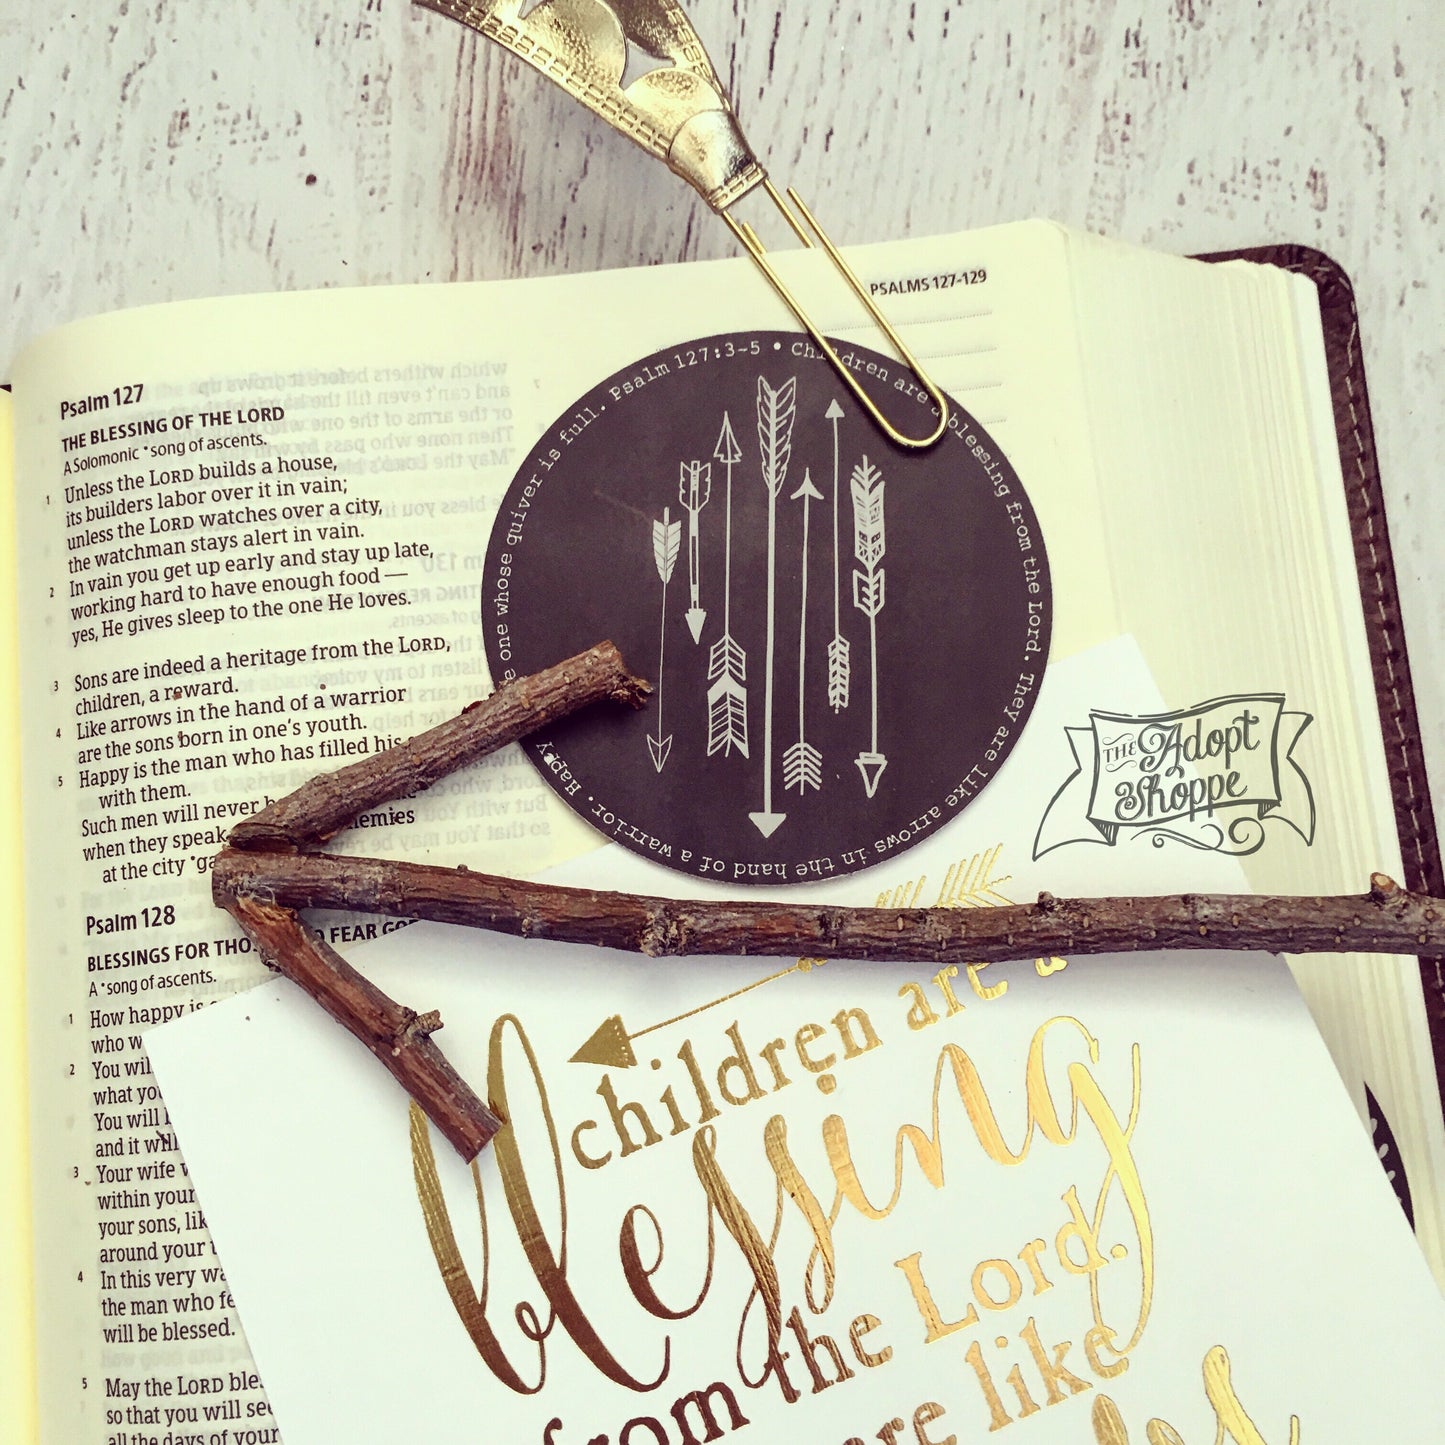 PSALMS 127-129
Psalm 127
THE BLESSING OF THE LORD
A Solomonic •song of ascents.
1 Unless the LORD builds a house,
its builders labor over it in vain;
unless the LORD watches over a city,
the watchman stays alert in vain.
2 In vain you get up early and stay up late,
working hard to have enough food —
yes, He gives sleep to the one He loves.
3 Sons are indeed a heritage from the LORD,
children, a reward.
4 Like arrows in the hand of a warrior
are the sons born in one's youth.
5 Happy is the man who has filled his
with them.
Such men will never
when they speak enemies
at the city
Psalm 128
BLESSINGS FOR FEAR
A •song of ascents.
1 How happy is
who
2 You will
what
You will
and it will
3 Your wife
within your
your sons,
around your
4 In this very
the man who
will be blessed.
5 May the LORD
so that you will
all the days of your
Psalm 127:3-5 • Children are a blessing from the Lord. They are like arrows in the hand of a warrior. Happy one whose quiver is full.
THE Adopt
Shoppe
children are a
blessing
from the Lord.
like